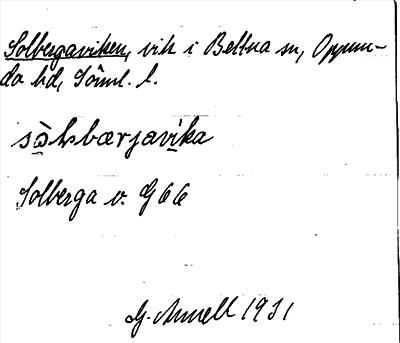 Solbergaviken, vik i Bettna sn, Oppun-
da hd, Söml. l.
Solberga v. G66
G. Annell 1931